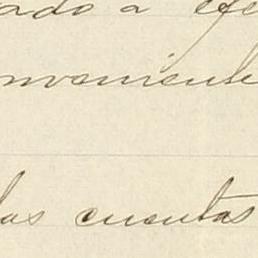 ado a efe
nveniente
las cuentas